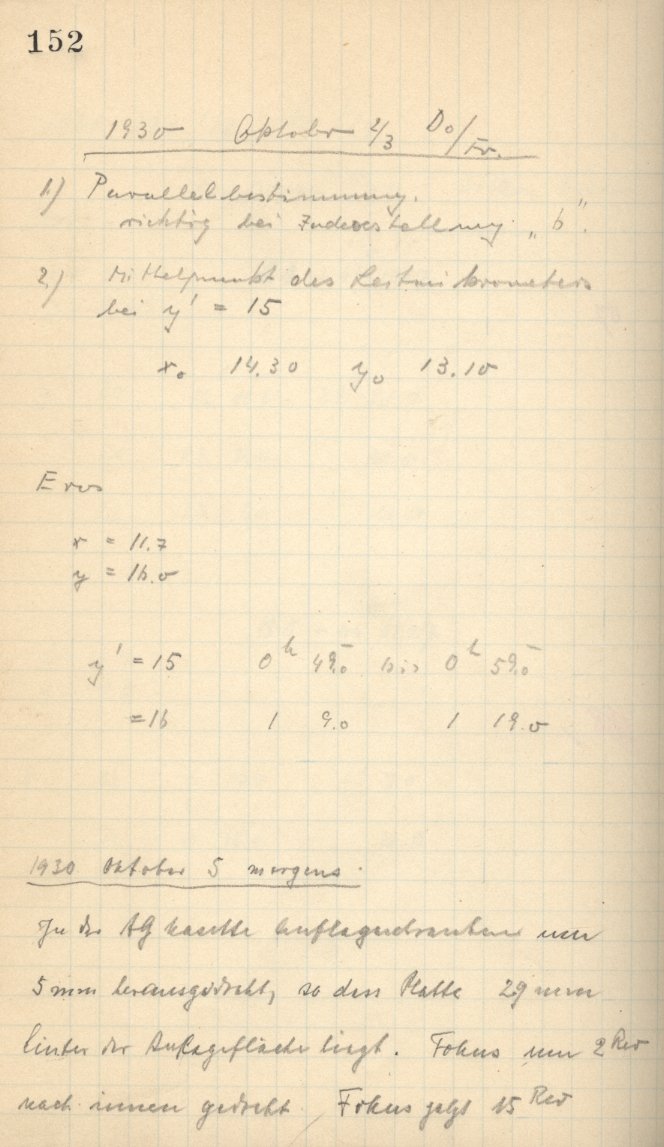 152
1930 Oktober 2/3 Do/Fr.
1.) Parallelbestimmung.
richtig bei Indexstellung „b“.
2.) Mittelpunkt des Leitmikrometers
bei y' = 15
x₀ 14.30 y₀ 13.10
Eros
x = 11.7
y = 16.0
y' = 15 0ʰ 49.0 bis 0ʰ 59.0
= 16 1 9.0 1 19.0
1930 Oktober 5 morgens.
In der AG Kasette Auflageschrauben um
5 mm herausgedreht, so dass Platte 29 mm
hinter der Auflagefläche liegt. Fokus um 2 Rev
nach innen gedreht. Fokus jetzt 15 Rev